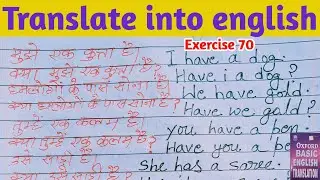 Translate into english
Exercise 70
मुझे एक कुत्ता है।
I have a dog.
क्या मुझे एक कुत्ता है?
Have i a dog?
हमलोगों के पास सोना है।
We have gold.
क्या हमलोगों के पास सोना है?
Have we gald?
तुम्हें एक कलम है।
you have a pen.
क्या तुम्हें एक कलम है?
Have you a pen
उसे साड़ी है।
She has a saree.
OXFORD
BASIC
ENGLISH
TRANSLATION